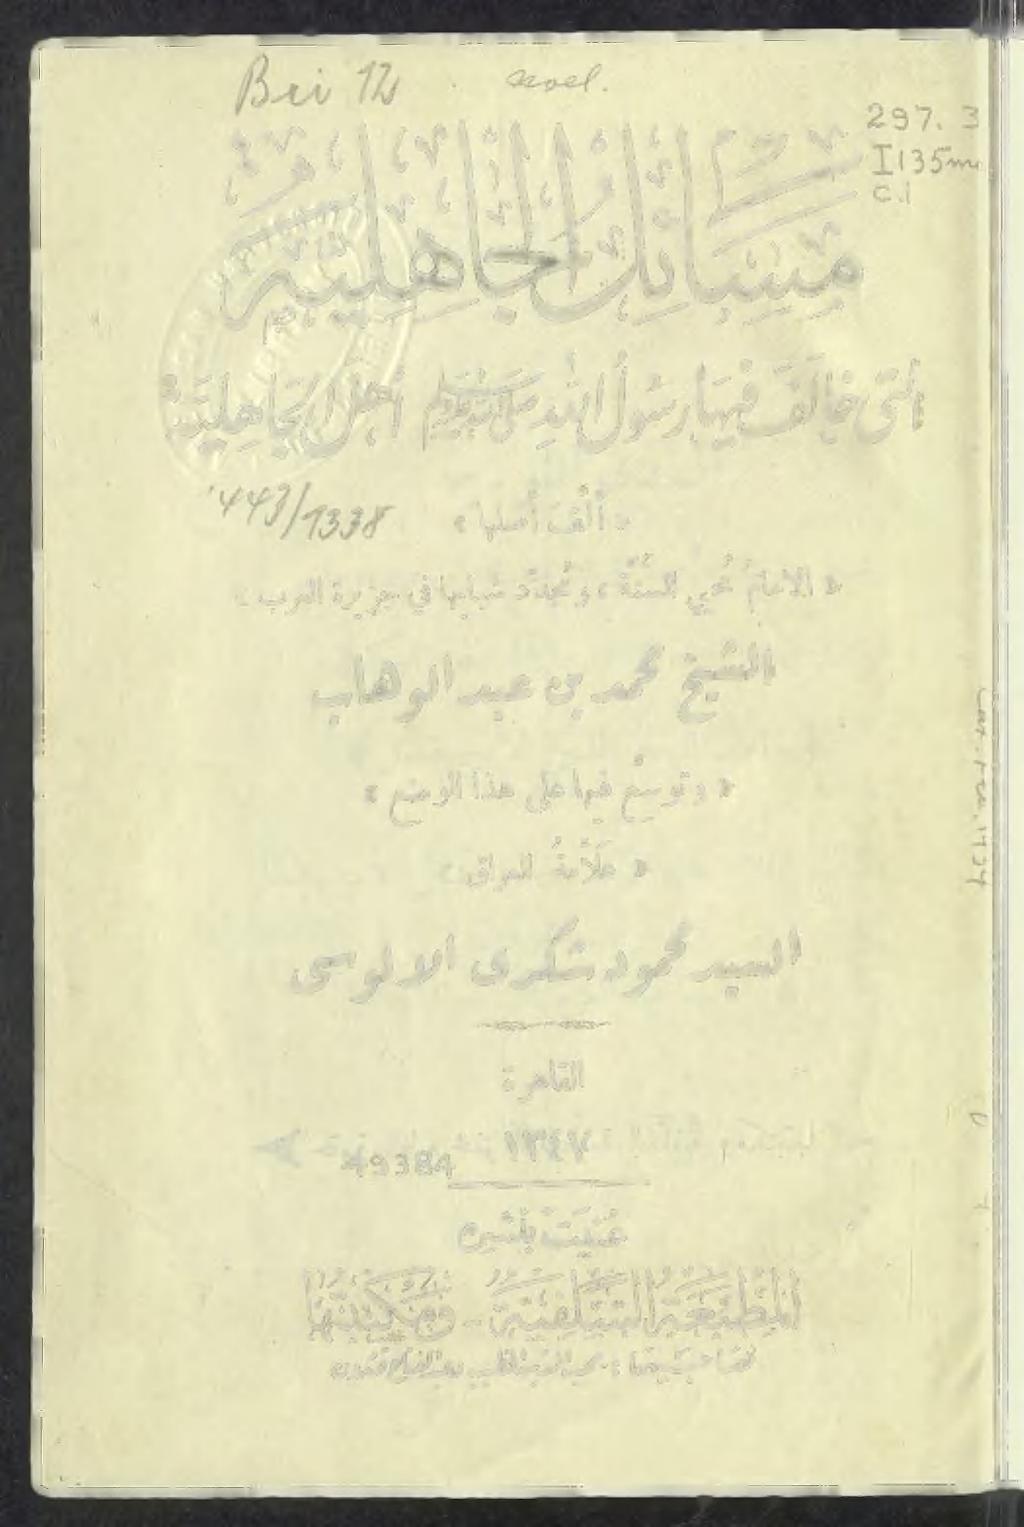 Bei 12
297. 3
I135mu
c.1
مسائل الجاهلية
التى خالف فيها رسول الله صلى الله عليه وسلم أهل الجاهلية
443/1338
« ألّف أصلها »
« الامام محيي السنة ، ومجدد شبابها في جزيرة العرب »
الشيخ محمد بن عبد الوهاب
« وتوسع فيها على هذا الوضع »
« علّامة العراق »
السيد محمود شكرى الالوسى
القاهرة
١٣٤٧
49384
عنيت بنشره
المطبعة السلفية - ومكتبتها
لصاحبيها : محب الدين الخطيب وعبد الفتاح قتلان